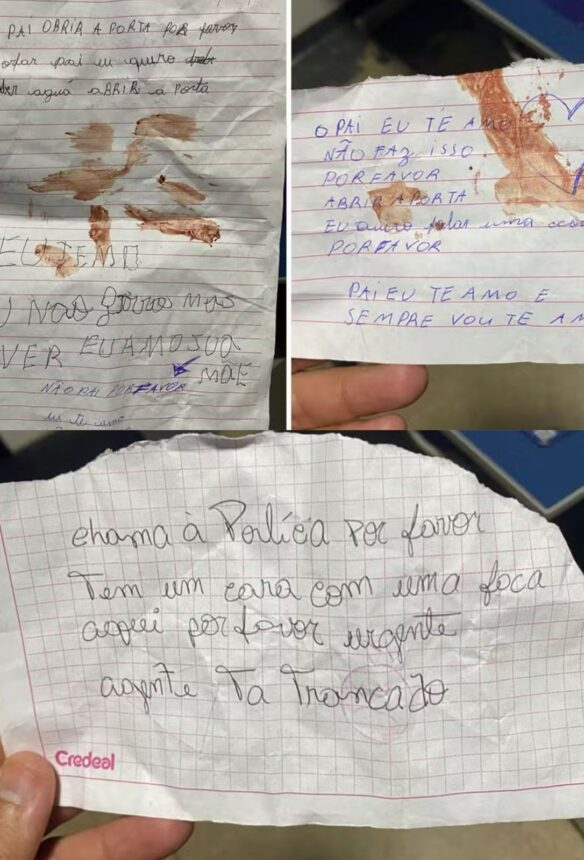 PAI OBRIR A PORTA POR favor
pai eu quero
agua ABRIR a Porta
EU TEMO
NAO
VER EUAMOSUA
MÃE
NÃO PAI PORFAVOR
eu te amo
O PAI EU TE AMO
NÃO FAZ ISSO
PORFAVOR
ABRIR APORTA
EU quero falar uma
PORFAVOR
PAI EU TE AMO E
SEMPRE VOU TE AM
chama à Porlícia Por favor
Tem um cara com uma foca
aqui por favor urgente
agente Ta Trancado
Credeal